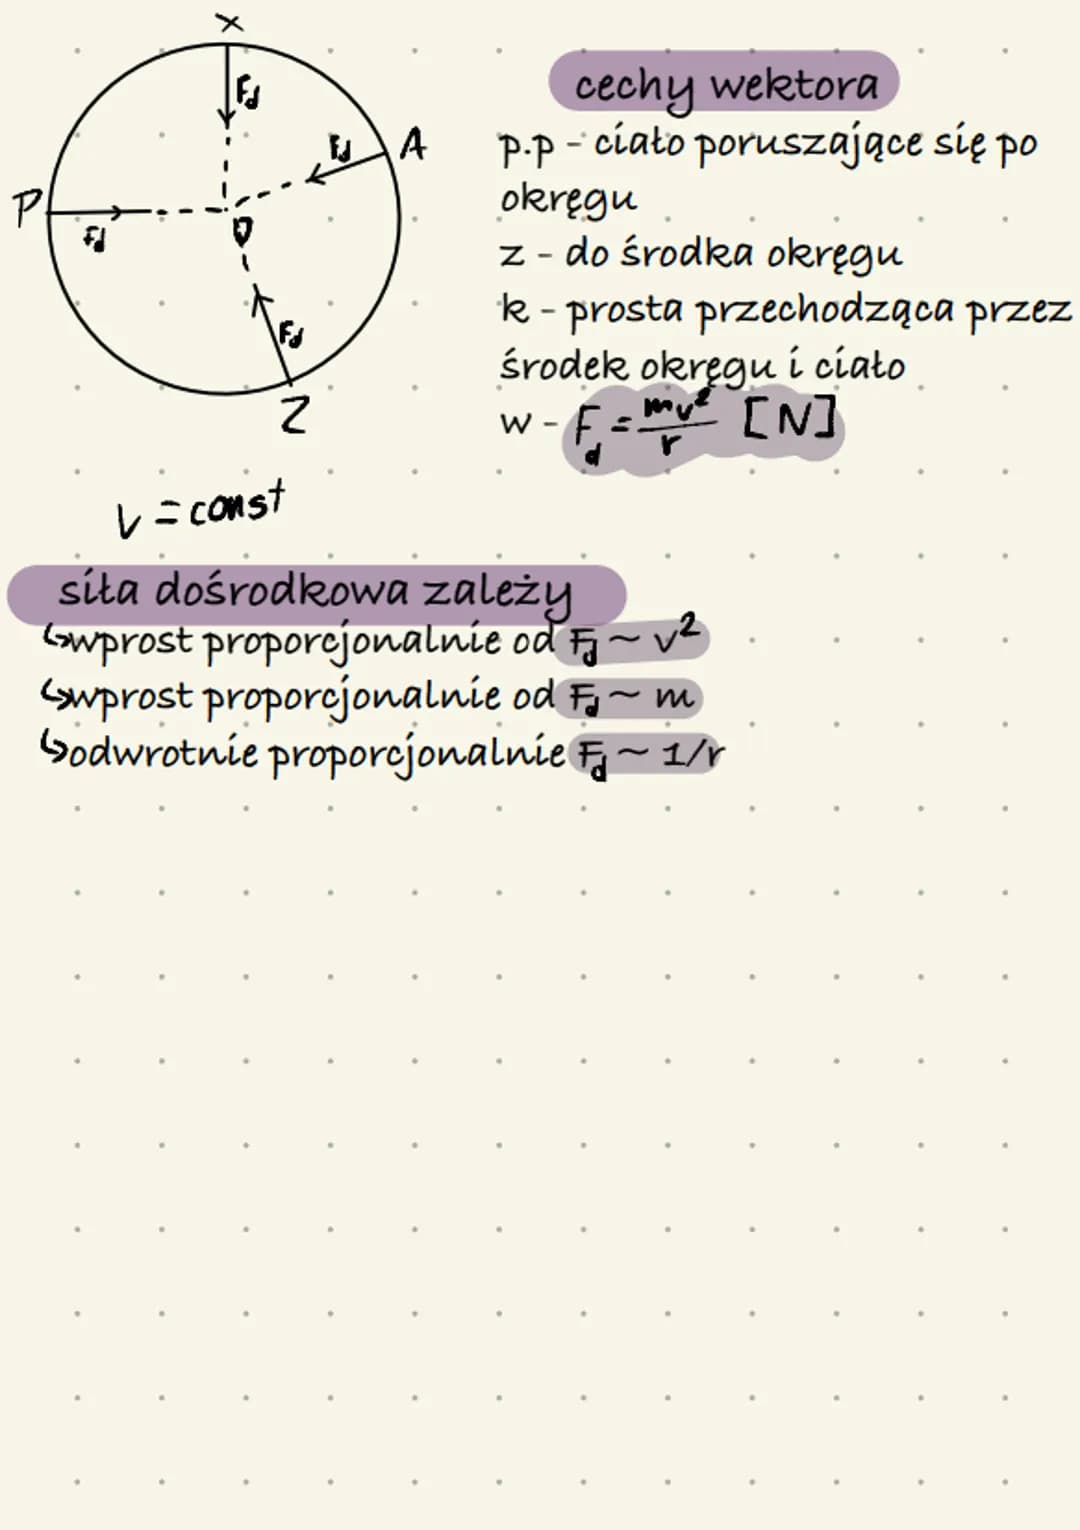 x
Fd
Fd
A
P
Fd
O
Fd
Z
v = const
cechy wektora
p.p - ciało poruszające się po
okręgu
z - do środka okręgu
k - prosta przechodząca przez
środek okręgu i ciało
w - F_d = mv²/r [N]
siła dośrodkowa zależy
↳wprost proporcjonalnie od F_d ~ v²
↳wprost proporcjonalnie od F_d ~ m
↳odwrotnie proporcjonalnie F_d ~ 1/r